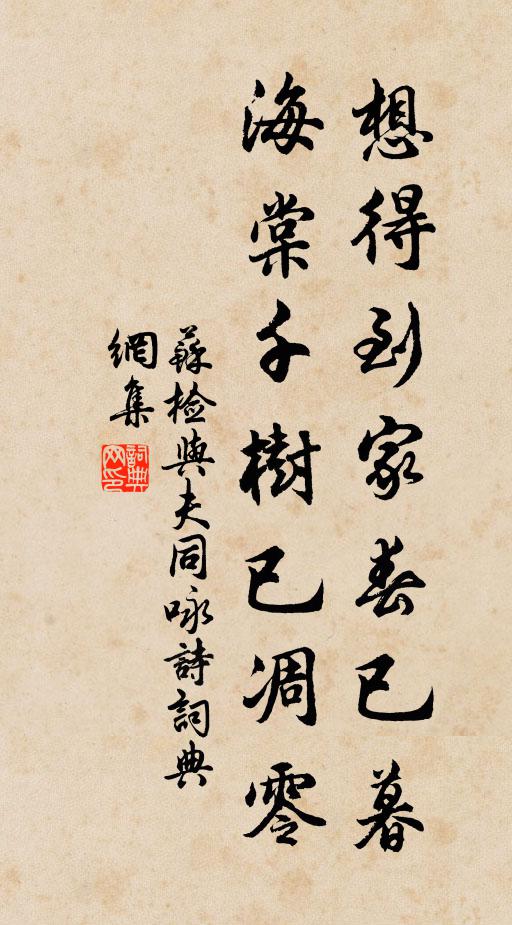 想得到家春已暮
海棠千樹已凋零
蘇檢與夫同咏詩詞典
網集
詞典
网印